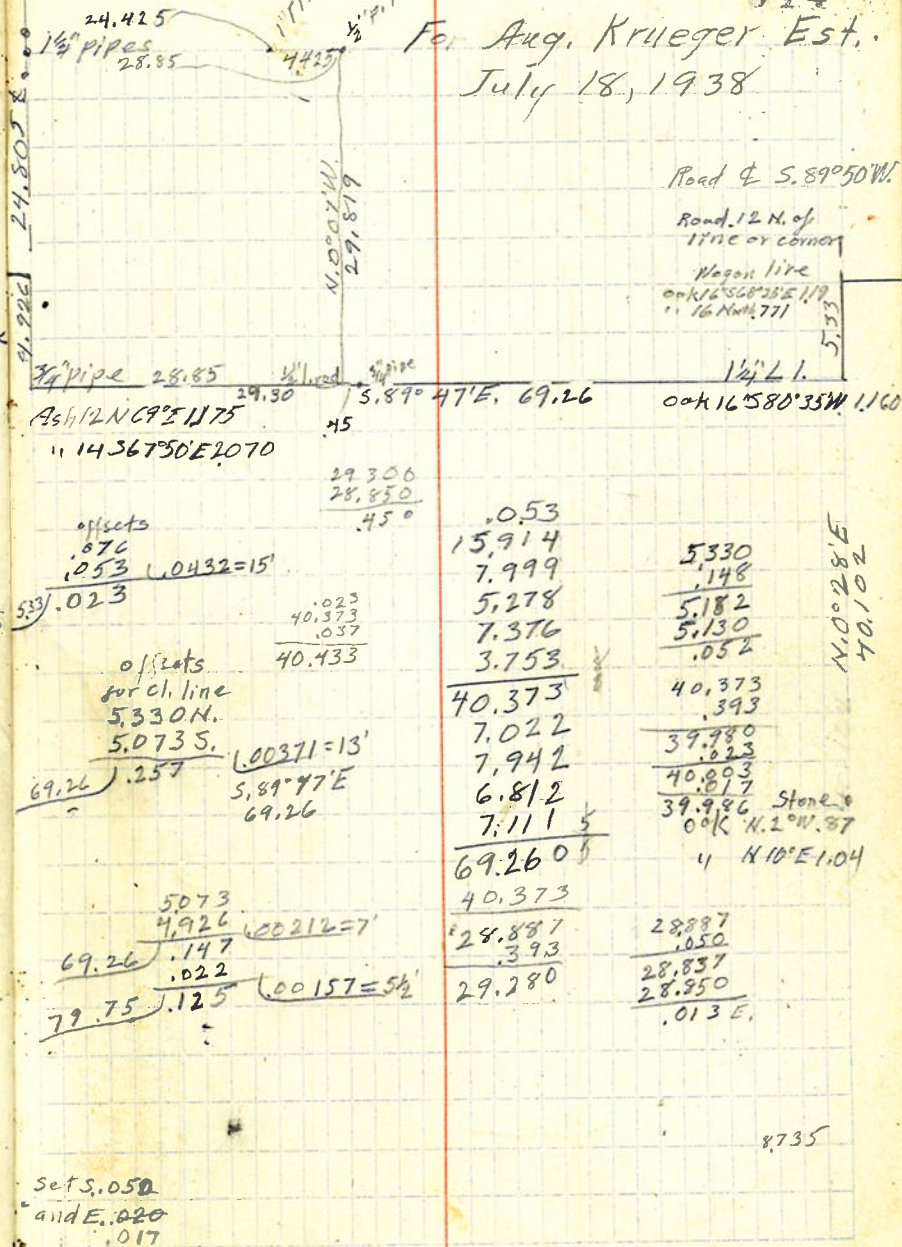 24.425
1¼" pipes
28.85
4425
½" P.
For Aug. Krueger Est.
July 18, 1938
24.805
4.926
N.0°07'W.
29.819
Road ℄ S.89°50'W.
Road .12 N. of
line or corner
Wagon line
oak 16" S68°35'E 1.19
" 16 North .771
5.33
¾" pipe 28.85
29.30
½" I. rod
¾" pipe
.45
S.89° 47'E. 69.26
1¼" L I.
Ash 12 N 69°E 1.175
" 14 S67°50'E 2.070
oak 16" S80°35'W 1.160
29.300
28.850
.450
offsets
.076
.053
5.33 ) .023 ( .0432=15'
.023
40.373
.037
40.433
offsets
for cl. line
5.330 N.
5.073 S.
69.26 ) .257 ( .00371=13'
S.89°47'E
69.26
5.073
4.926
69.26 ) .147 ( .00212=7'
.022
79.75 ) .125 ( .00157=5½'
.053
15.914
7.999
5.278
7.376
3.753
40.373
7.022
7.942
6.812
7.111 5
69.260 5
40.373
28.887
.393
29.280
5.330
.148
5.182
5.130
.052
40.373
.393
39.980
.023
40.003
.017
39.986
N.0°28'E
40.102
Stone
oak N.2°W .87
" N 10°E 1.04
28.887
.050
28.837
28.850
.013 E.
8735
set S. .050
and E. .020
.017